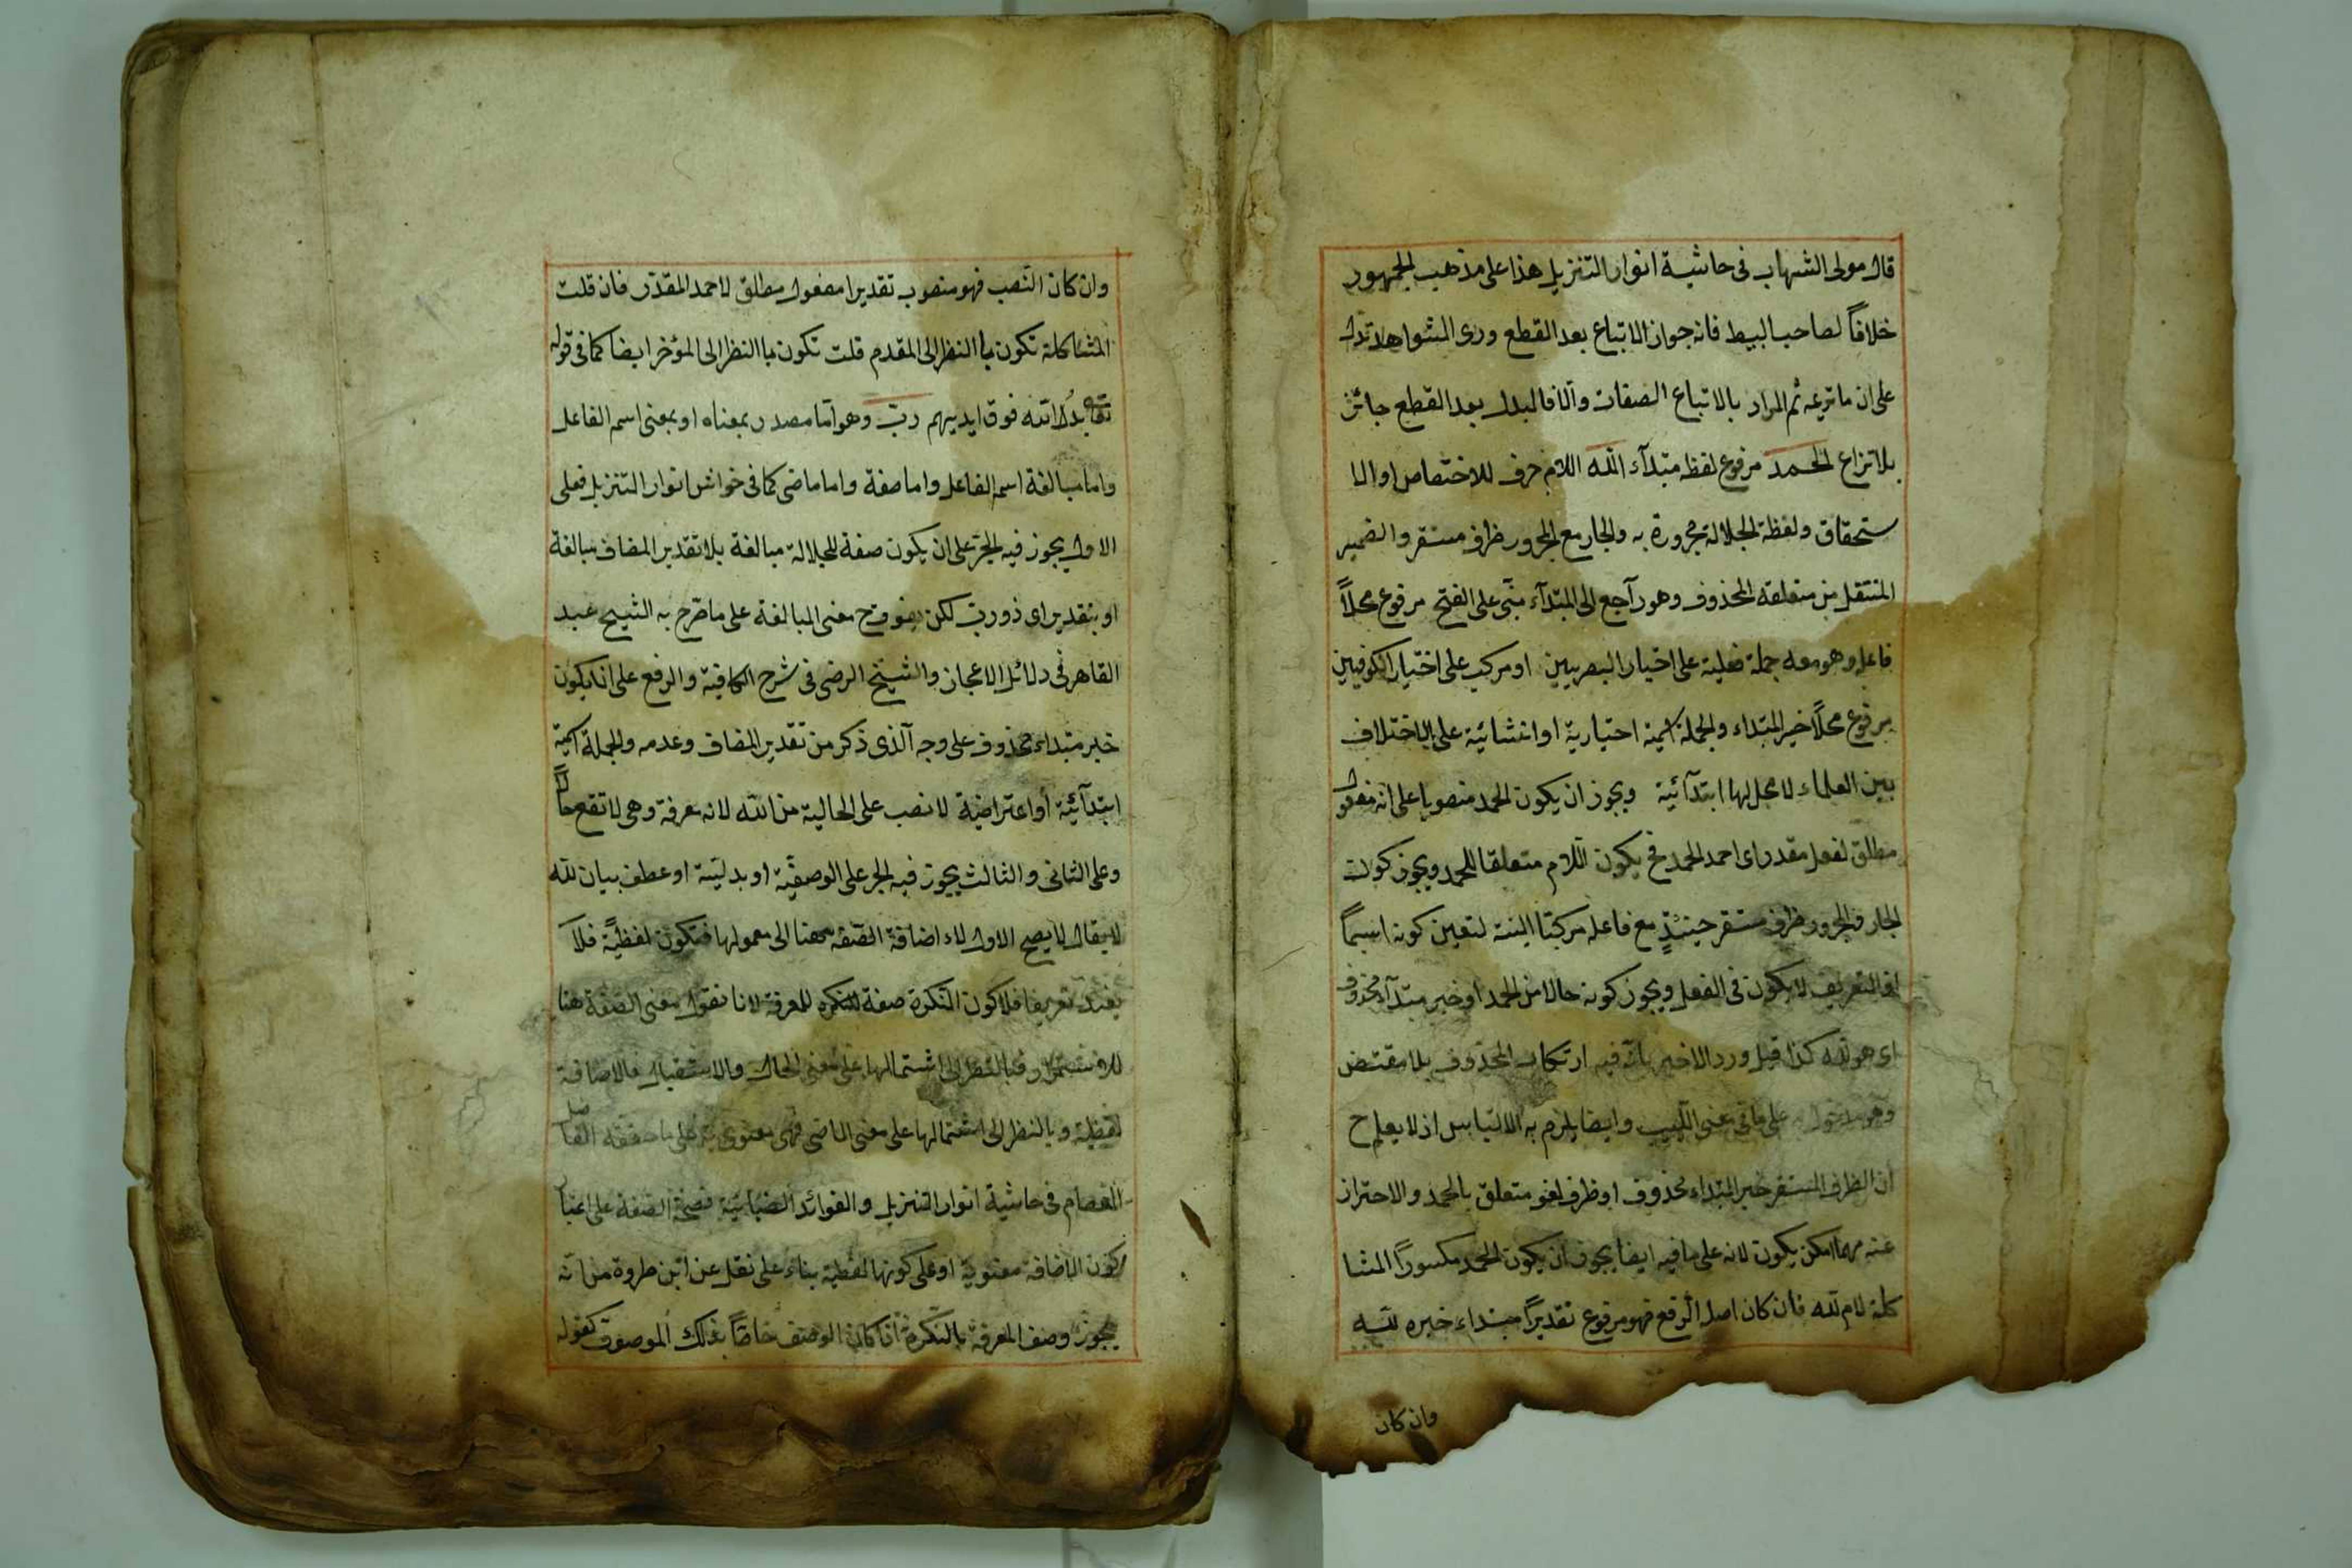 قال مولى الشهاب فى حاشية انوار التنزيل هذا على مذهب الجمهور
خلافاً لصاحب البسيط فانه جواز الاتباع بعد القطع ورى الشواهد تدل
على ان ما تزعمه ثم المراد بالاتباع الصفات والا فالبدل بعد القطع جائز
بلا نزاع الحمد مرفوع لفظ مبتدآء الله اللام حرف للاختصاص او الا
ستحقاق ولفظة الجلالة مجرورة به والجار مع المجرور ظرف مستقر والضمير
المنتقل من متعلقه المحذوف وهو رآجع الى المبتدآء مبنى على الفتح مرفوع محلاً
فاعله وهو معه جملة فعلية على اختيار البصريين او مركب على اختيار الكوفيين
مرفوع محلاً خبر المبتداء والجملة اسمية اخبارية او انشائية على الاختلاف
بين العلماء لا محل لها ابتدآئية ويجوز ان يكون الحمد منصوبا على انه مفعول
مطلق لفعل مقدر اى احمد الحمد فح يكون اللام متعلقا للحمد ويجوز كون
الجار والمجرور ظرف مستقر حينئذٍ مع فاعله مركبتا البتة لتعين كونه اسماً
اذ التعريف لا يكون فى الفعل ويجوز كونه حالا من الحمد او خبر مبتدآء محذوف
اى هو لله كذا قيل ورد الاخير بانّ فيه ارتكاب المحذوف بلا مقتض
وهو على ما فى مغنى اللبيب وايضا يلزم به الالتباس اذ لا يعلم ح
ان الظرف المستقر خبر المبتداء محذوف او ظرف لغو متعلق بالحمد والاحتراز
عنه مهما امكن يكون لانه على ما فيه ايضا يجوز ان يكون الحمد مكسوراً المشا
كلة لام لله فان كان اصل الرفع فهو مرفوع تقديراً مبتداء خبره لله
وان كان
وان كان النّصب فهو منصوب تقديرا مفعول مطلق لاحمد المقدّر فان قلت
المشاكلة تكون با النظر الى المقدم قلت تكون با النظر الى المؤخر ايضا كما فى قوله
تعالى يدُ الله فوق ايديهم ربّ وهو امّا مصدر بمعناه او بمعنى اسم الفاعل
واما مبالغة اسم الفاعل واما صفة واما ماضى كما فى حواش انوار التنزيل فعلى
الاول يجوز فيه الجرّ على ان يكون صفة للجلالة مبالغة بلا تقدير المضاف مبالغة
او بتقدير اى ذو ربّ لكن يفوح معنى المبالغة على ما صّرح به الشيخ عبد
القاهر فى دلائل الاعجاز والشيخ الرضى فى شرح الكافية والرفع على انه يكون
خبر مبتداء محذوف على وجه الّذى ذكر من تقدير المضاف وعدمه والجملة اسمية
ابتدآئيّة أو اعتراضيّة لا نصب على الحالية من الله لانه معرفة وهى لا تقع حالاً
وعلى الثانى والثالث يجوز فيه الجر على الوصفيّة او بدليّة او عطف بيان لله
لا يقال لا يصح الاول لاء اضافة الصّفة ههنا الى معمولها فتكون لفظيّة فلا
يفيد تعريفا فلا كون النّكرة صفة للنكره للمعرفة لانا نقول معنى الصّفة هنا
للاستمرار فبالنّظر الى اشتمالها على معنى الحال والاستقبال فالاضافة
لفظيّة وبالنظر الى اشتمالها على معنى الماضى فهى معنوى بة على ما حققه الفاضل
العصام فى حاشية انوار التنزيل والفوائد الضيائيّة فصحّة الصّفة على اعتبار
كون الاضافة معنوية او على كونها لفظية بناء على نقل عن ابن طروة من انّه
يجوز وصف المعرفة بالنّكرة اذا كان الوصف خاصّاً بذلك الموصوف كقوله